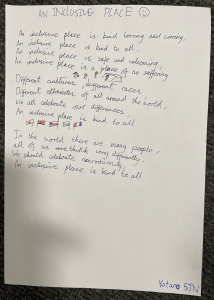 AN INCLUSIVE PLACE
An inclusive place is kind loving and caring,
An inclusive place is kind to all,
An inclusive place is safe and welcoming,
An inclusive place is a place of no suffering
Different cultures, different races
Different ethnicities of all around the world,
We all celebrate our differences,
An inclusive place is kind to all
In the world there are many people,
all of us think very differently.
We should celebrate neurodiversity
An inclusive place is kind to all
Kotaro 5JN